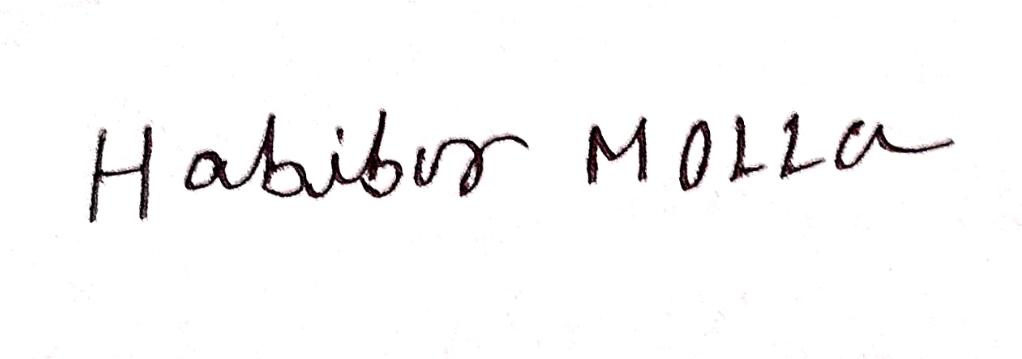 Habibur MOLLa